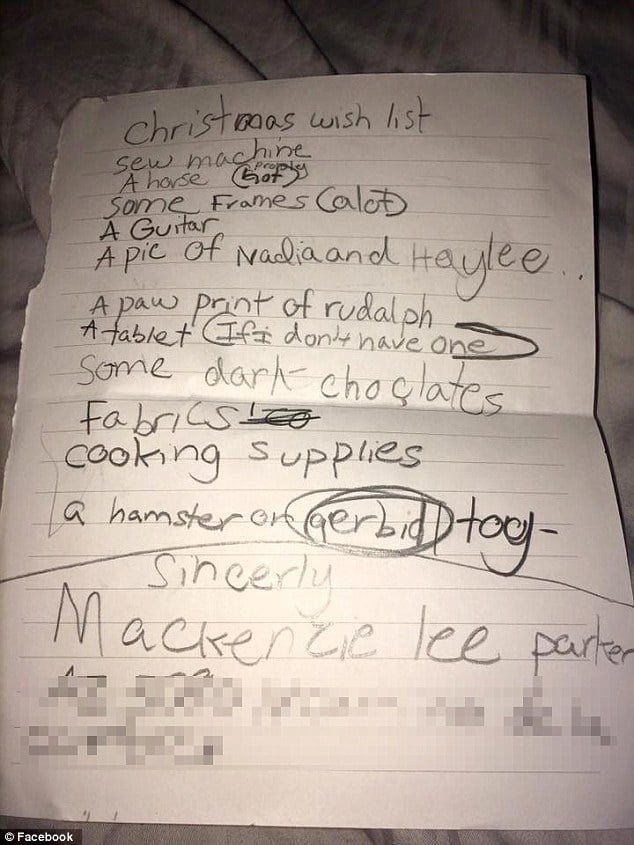 Christmas wish list
sew machine
A horse (proply not)
Some Frames (alot)
A Guitar
A pic of Nadia and Haylee..
A paw print of rudalph
A tablet (If I don't have one)
Some dark choclates
Fabrics
cooking supplies
a hamster or gerbid toy-
Sincerly
Mackenzie lee parker
© Facebook